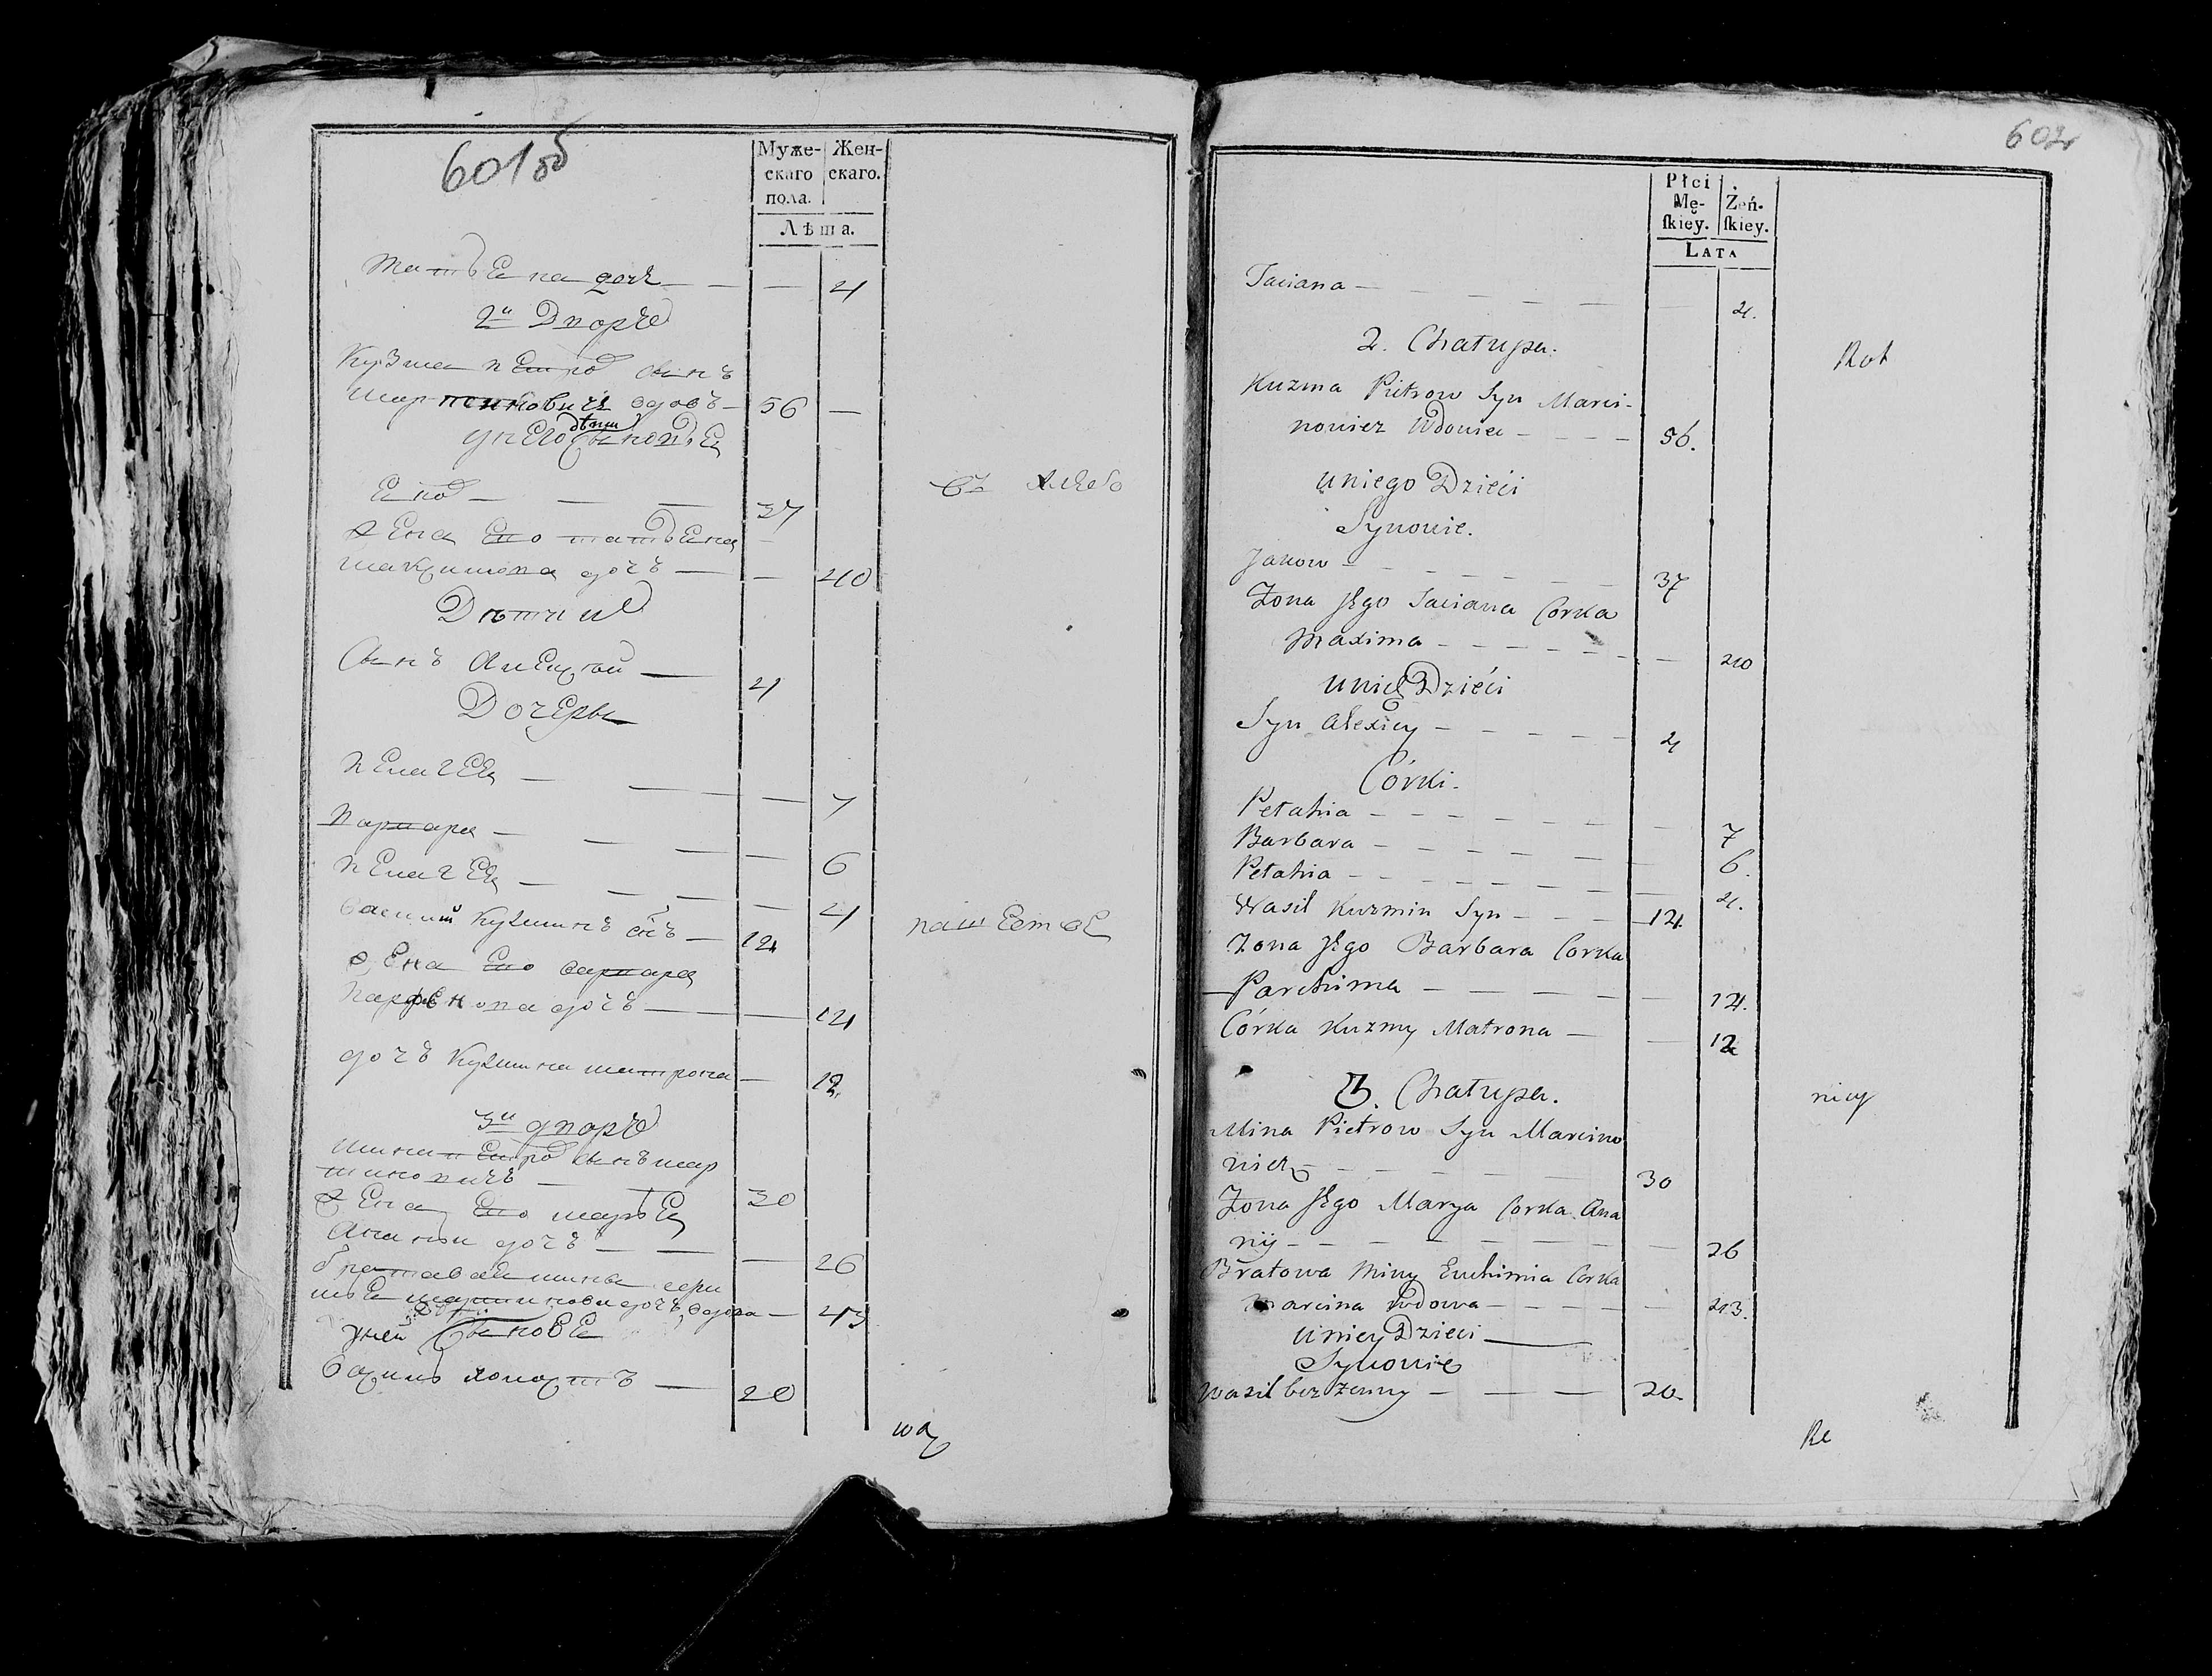 601об
Муже-
скаго
пола.
Жен-
скаго.
Лѣта.
татьЕна дочь 4
2й Дворъ
Кузма пЕтров сынъ
мартиновичь вдовъ 56
унЕго дѣти сыновьЕ
37
жЕна Его татьЕна
максимова дочъ 40
Дѣти их
Сынъ алЕксѣй 4
ДочЕры
пЕлагЕя 7
варвара 6
пЕлагЕя 4
василий Кузминъ снъ 14
жЕна Его варвара
парфЕнова дочъ 14
дочъ Кузмина матрона 12
3й дворъ
мина пЕтров сынъ мар
тиновичъ 30
жЕна Его марьЕя
ананьи дочъ 26
мартинова дочъ вдова 43
уней дѣти СыновЕ
василь холостъ 20
въ хлЕбо
пашЕствЕ
602
Płci
Mę-
skiey.
Żeń-
skiey.
LATA
Taciana 4.
2. Chałupa.
Kuzma Pietrow Syn Marci-
nowicz Wdowiec 56.
uniego Dzieći
Synowie.
Jakow 37
Żona Jego Taciana Corka
Maxima 40
unich Dzieći
Syn Alexiey 4
Córki.
Pełahia 7
Barbara 6.
Pełahia 4.
Wasil Kuzmin Syn 14.
Żona Jego Barbara Corka
Parchima 14.
Córka Kuzmy Matrona 12
3. Chałupa.
Mina Pietrow Syn Marcino
wicz 30
Żona Jego Marya Corka Ana
nij 26
Bratowa Miny Euchimia Corka
Marcina wdowa 43.
uniey Dzieci
Synowie
Wasil bezżenny 20.
Rol
nicy
Re